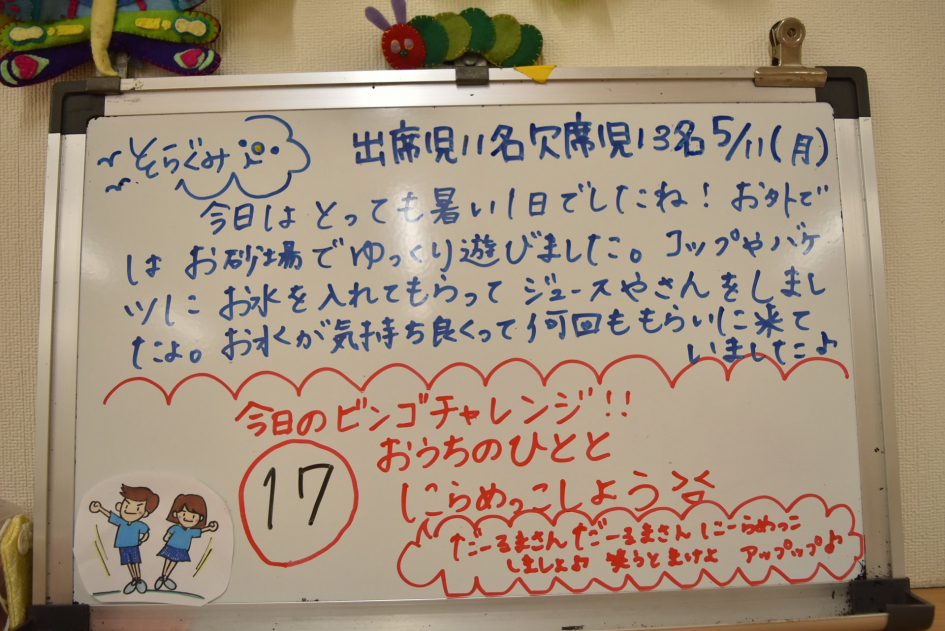 そらぐみ 出席児11名欠席児13名5/11(月)
今日はとっても暑い1日でしたね！お外で
はお砂場でゆっくり遊びました。コップやバケ
ツにお水を入れてもらってジュースやさんをしまし
たよ。お水が気持ち良くって何回ももらいに来て
いました♪
今日のビンゴチャレンジ!!
おうちのひとと
17
にらめっこしよう
だーるまさんだーるまさんにーらめっこ
しましょ♪ 笑うとまけよ アップップ♪